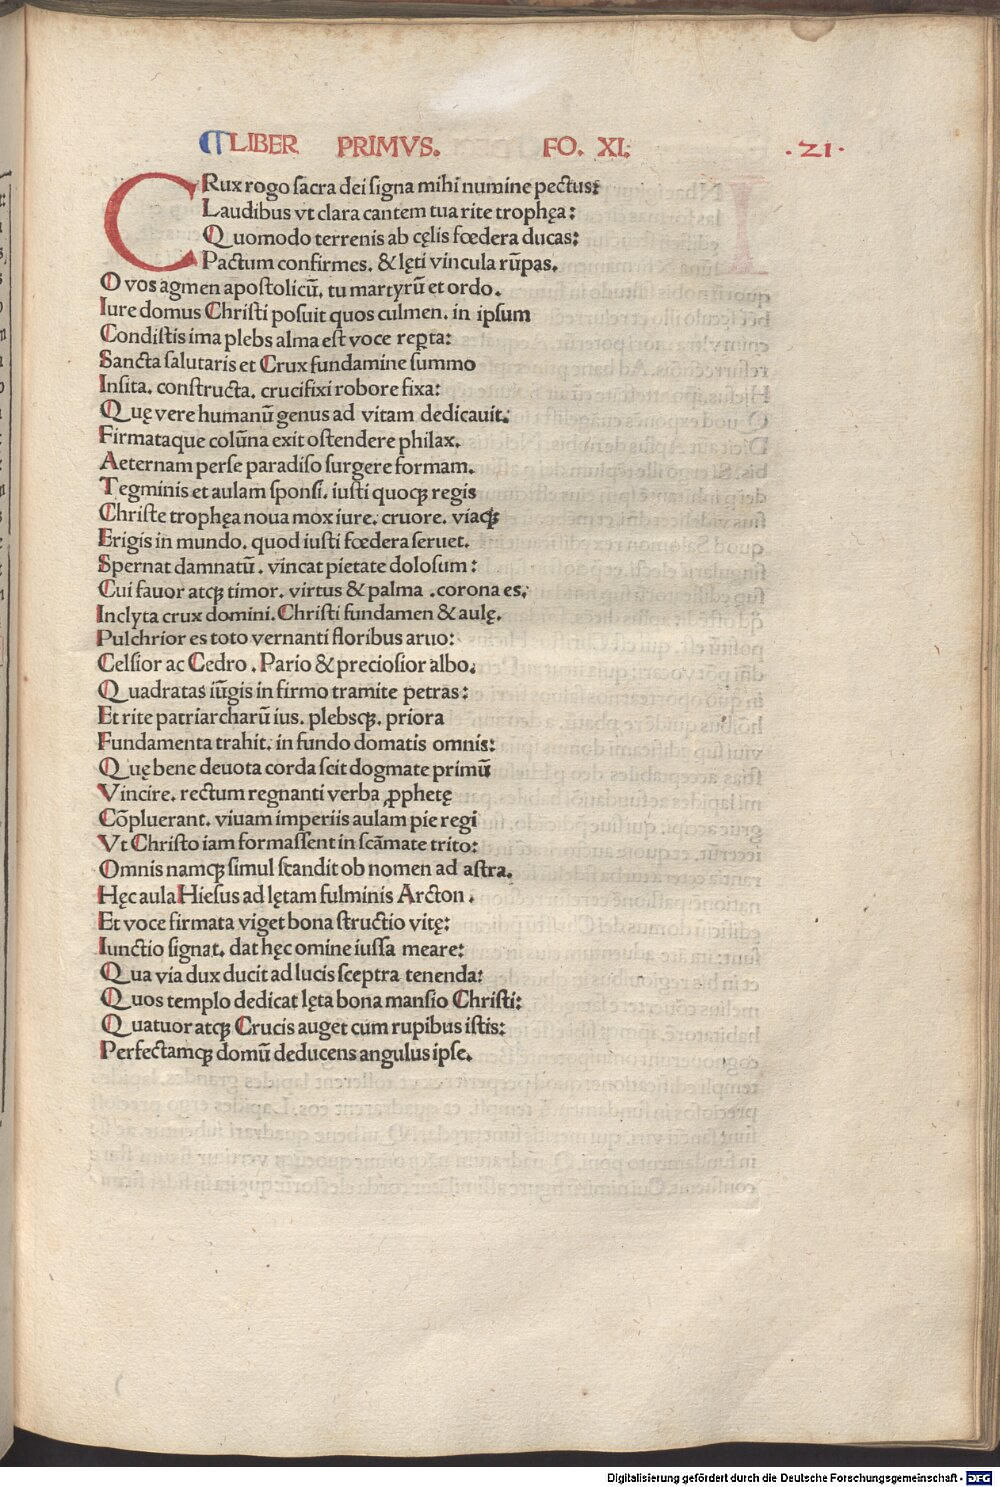 ¶LIBER PRIMVS. FO. XI. .21.
CRux rogo sacra dei signa mihi numine pectus:
Laudibus vt clara cantem tua rite trophęa:
Quomodo terrenis ab cęlis fœdera ducas:
Pactum confirmes. & lęti vincula rūpas.
O vos agmen apostolicū. tu martyrū et ordo.
Iure domus Christi posuit quos culmen. in ipsum
Condistis ima plebs alma est voce repta:
Sancta salutaris et Crux fundamine summo
Insita. constructa. crucifixi robore fixa:
Quę vere humanū genus ad vitam dedicauit:
Firmataque colūna exit ostendere philax.
Aeternam perse paradiso surgere formam.
Tegminis et aulam sponsi. iusti quoqꝫ regis
Christe trophęa noua mox iure. cruore. viaqꝫ
Erigis in mundo. quod iusti fœdera seruet.
Spernat damnatū. vincat pietate dolosum:
Cui fauor atqꝫ timor. virtus & palma .corona es.
Inclyta crux domini. Christi fundamen & aulę.
Pulchrior es toto vernanti floribus aruo:
Celsior ac Cedro . Pario & preciosior albo.
Quadratas iūgis in firmo tramite petras:
Et rite patriarcharū ius. plebsqꝫ. priora
Fundamenta trahit. in fundo domatis omnis:
Quę bene deuota corda scit dogmate primū
Vincire. rectum regnanti verba ꝓphetę
Cōpluerant. viuam imperiis aulam pie regi
Vt Christo iam formassent in scāmate trito:
Omnis namqꝫ simul scandit ob nomen ad astra.
Hęc aula Hiesus ad lętam fulminis Arcton .
Et voce firmata viget bona structio vitę:
Iunctio signat. dat hęc omine iussa meare:
Qua via dux ducit ad lucis sceptra tenenda:
Quos templo dedicat lęta bona mansio Christi:
Quatuor atqꝫ Crucis auget cum rupibus istis:
Perfectamqꝫ domū deducens angulus ipse.
Digitalisierung gefördert durch die Deutsche Forschungsgemeinschaft - DFG